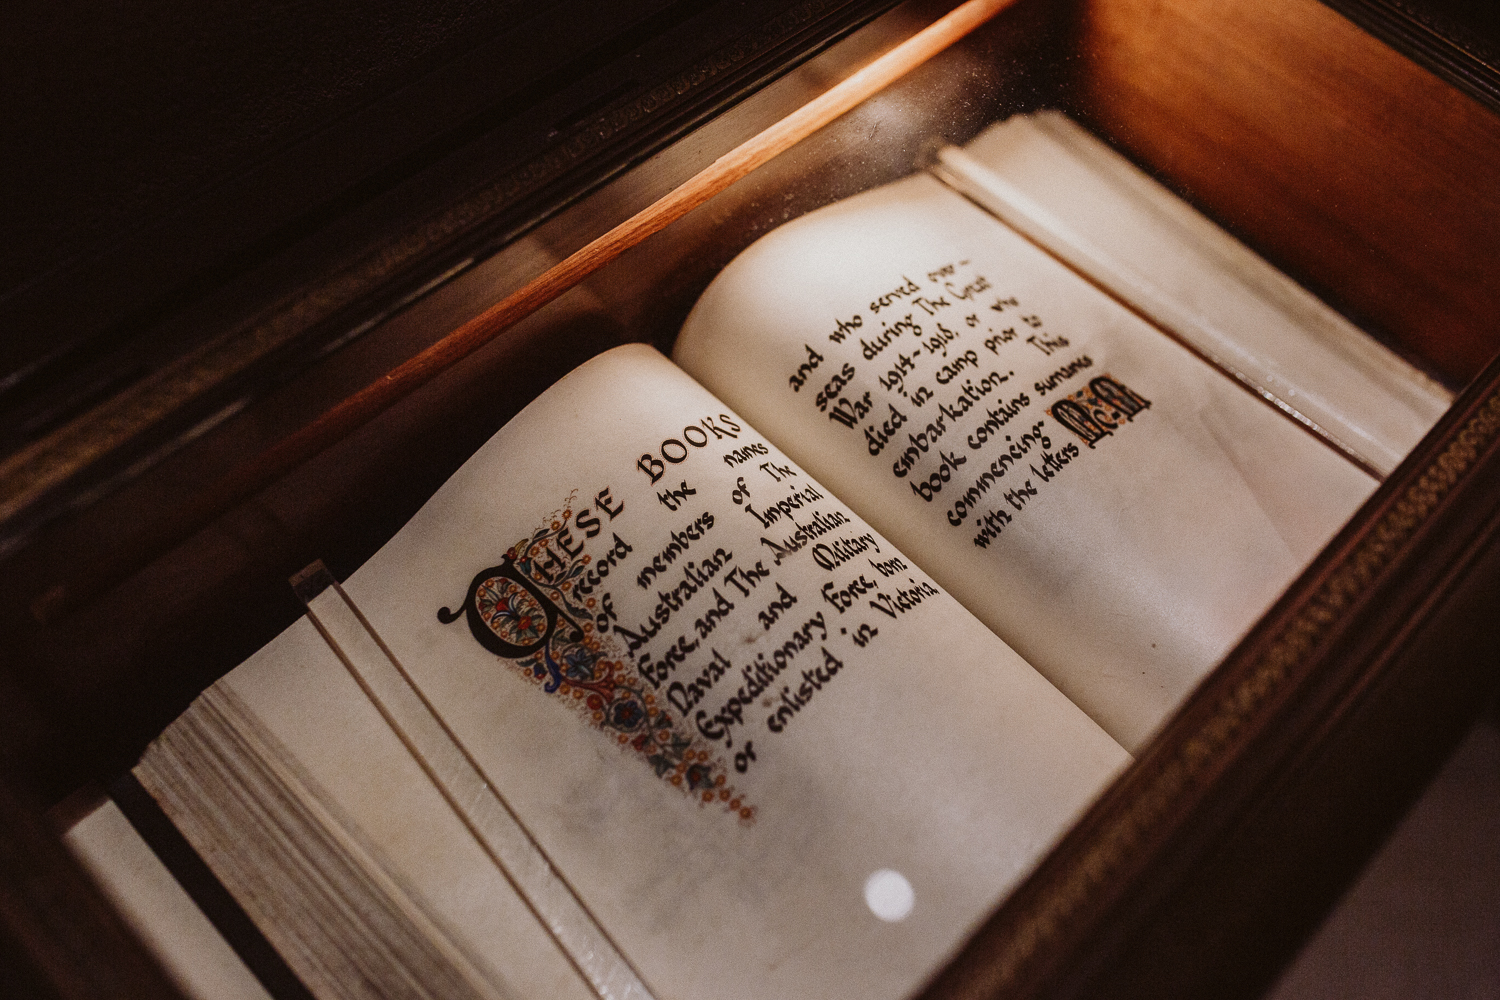 THESE BOOKS
record the names
of members of The
Australian Imperial
Force, and The Australian
Naval and Military
Expeditionary Force, born
or enlisted in Victoria
and who served over-
seas during The Great
War 1914~1918, or who
died in camp prior to
embarkation. This
book contains surnames
commencing
with the letters